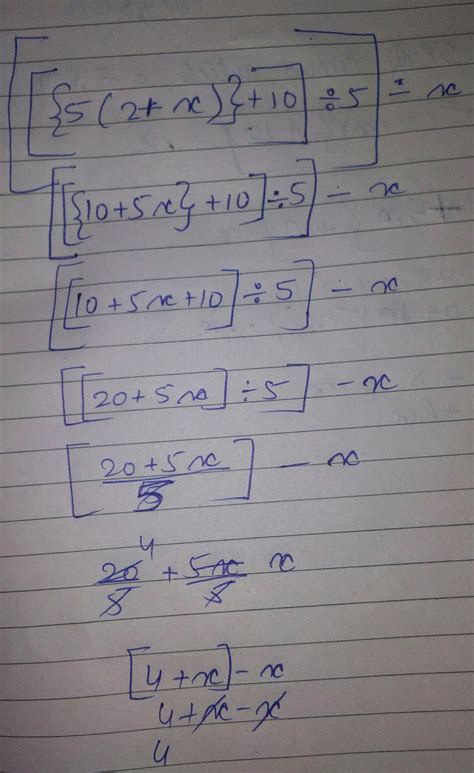 [[{5(2+x)}+10]÷5] = x
[[{10+5x}+10]÷5] - x
[[10+5x+10]÷5] - x
[[20+5x]÷5] - x
[20+5x/5] - x
4
20/5 + 5x/5 x
[4+x]-x
4+x-x
4